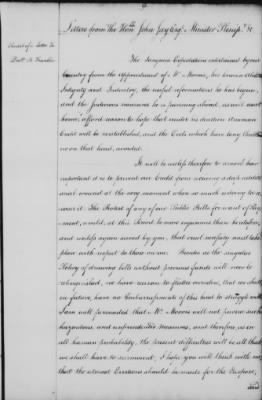 Letters from The Honble John Jay Esqr Minister Plenipo &c
Extract of a Letter to
Doctr B. Franklin
The Sanguine Expectations entertained by our
Country from the appointment of Mr Morris, her known Abilities
Integrity and Industry, the useful reformations he has begun,
and the judicious measures he is pursuing abroad, as well as at
home, afford reason to hope that under his direction American
Credit will be reestablished, and the Evils which have long
on that head, avoided.
It will be needless therefore to remark how
important it is to prevent our Credit from receiving a deep
and wound at the very moment when so much is doing to
it. The Protest of any of our Public Bills for want of Pay-
ment, would at this Period be more injurious than heretofore,
and unless again saved by you, that cruel necessity must take
place with respect to those on me. Besides as the singular
Policy of drawing bills without previous funds will now be
relinquished, we have reason to flatter ourselves, that we shall
in future, have no Embarrassments of this kind to struggle with
I am well persuaded that Mr Morris will not pursue such
hazardous, and unprecedented Measures, and therefore, as in
all human probability, the present difficulties will be all that
we shall have to surmount, I hope you will think with me,
that the utmost Exertions should be made for the Purpose,